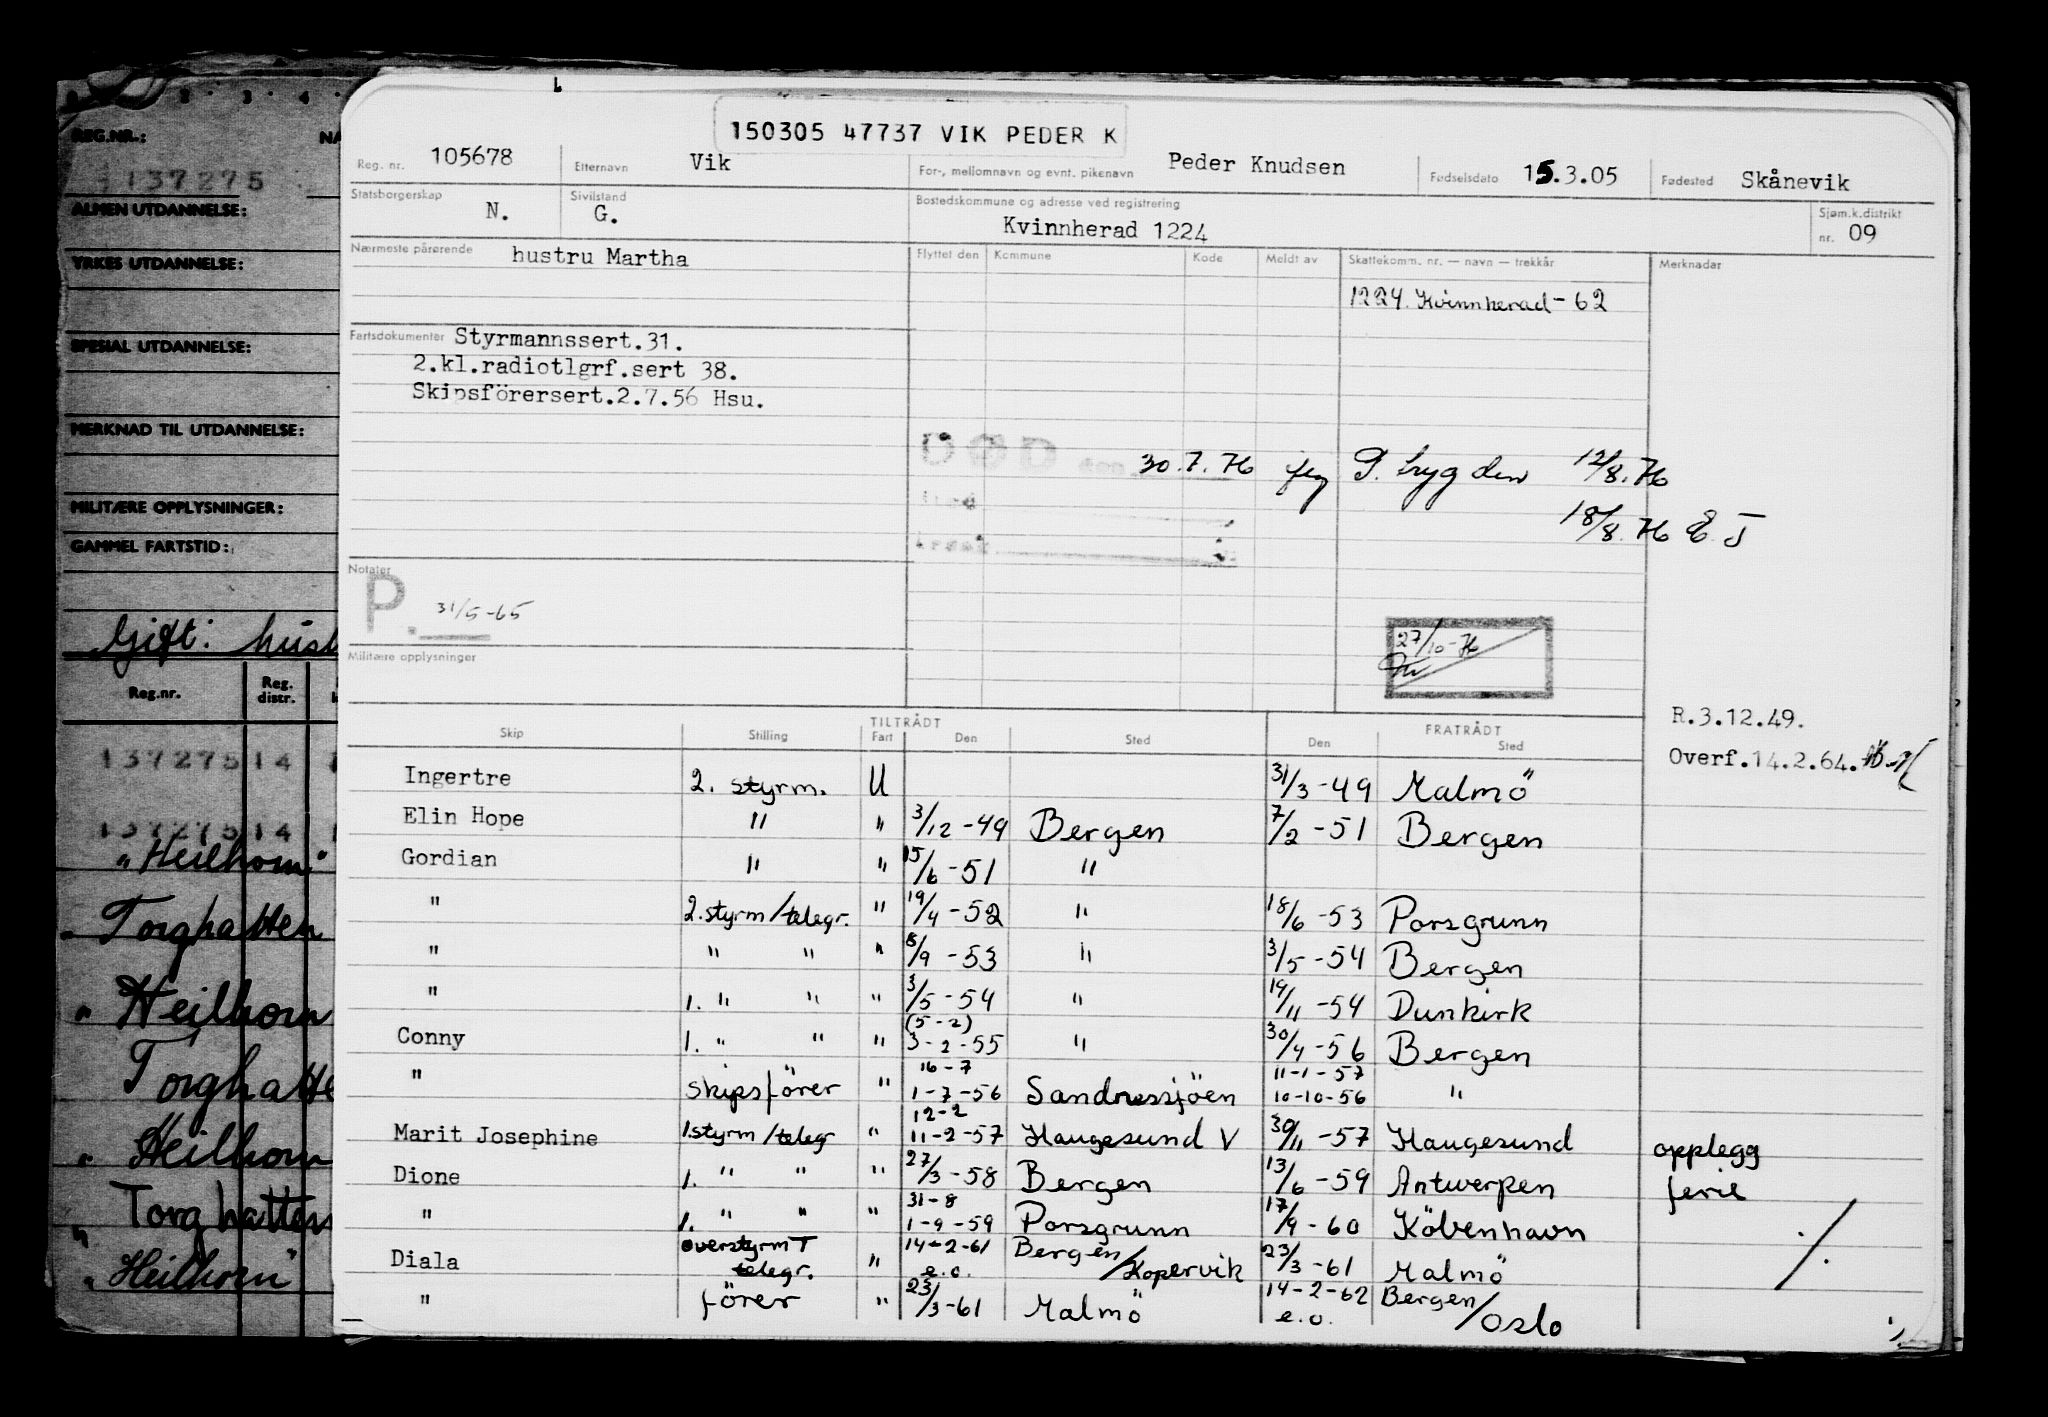 150305 47737 VIK PEDER K
Reg. nr. 105678 Etternavn Vik For-, mellomnavn og evnt. pikenavn Peder Knudsen Fødselsdato 15.3.05 Fødested Skånevik
Statsborgerskap N. Sivilstand G. Bostedskommune og adresse ved registrering Kvinnherad 1224 Sjøm.k.distrikt nr. 09
Nærmeste pårørende hustru Martha Flyttet den Kommune Kode Meldt av Skattekomm. nr. — navn — trekkår Merknader
1224. Kvinnherad - 62
Fartsdokumenter Styrmannssert.31.
2.kl.radiotlgrf.sert 38.
Skipsförersert.2.7.56 Hsu.
DØD den 30.7.76 flg P. trygden 12/8.76
18/8.76 E.J
Notater
P. 31/5-65
27/10-76
Militære opplysninger
R.3.12.49.
Overf.14.2.64.
TILTRÅDT FRATRÅDT
Skip Stilling Fart Den Sted Den Sted
Ingertre 2. styrm. U 31/3-49 Malmö
Elin Hope " " 3/12-49 Bergen 7/2-51 Bergen
Gordian " " 15/6-51 "
" 2.styrm/telegr. " 19/4-52 " 18/6-53 Porsgrunn
" " " " 8/9-53 " 3/5-54 Bergen
" 1. " " " 3/5-54 " 19/11-54 Dunkirk
(5-2)
Conny 1. " " " 3-2-55 " 30/4-56 Bergen
16-7 11-1-57
" skipsförer " 1-7-56 Sandnessjöen 10-10-56 "
12-2
Marit Josephine 1styrm/telegr " 11-2-57 Haugesund V 30/11-57 Haugesund opplegg
Dione 1. " " " 27/3-58 Bergen 13/6-59 Antwerpen ferie
31-8
" 1. " " " 1-9-59 Porsgrunn 17/9-60 Köbenhavn
Diala overstyrm T telegr. " 14-2-61 e.o. Bergen/Kopervik 23/3-61 Malmö
" förer " 23/3-61 Malmö 14-2-62 e.o. Bergen/Oslo
REG.NR.: NA
137275
ALMEN UTDANNELSE:
YRKES UTDANNELSE:
SPESIAL UTDANNELSE:
MERKNAD TIL UTDANNELSE:
MILITÆRE OPPLYSNINGER:
GAMMEL FARTSTID:
Gift: hust
Reg.nr. Reg. distr.
137275 14
137275 14
"Heilhorn"
" Torghatten
" Heilhorn
Torghatte
" Heilhorn
" Torghatten
" Heilhorn"